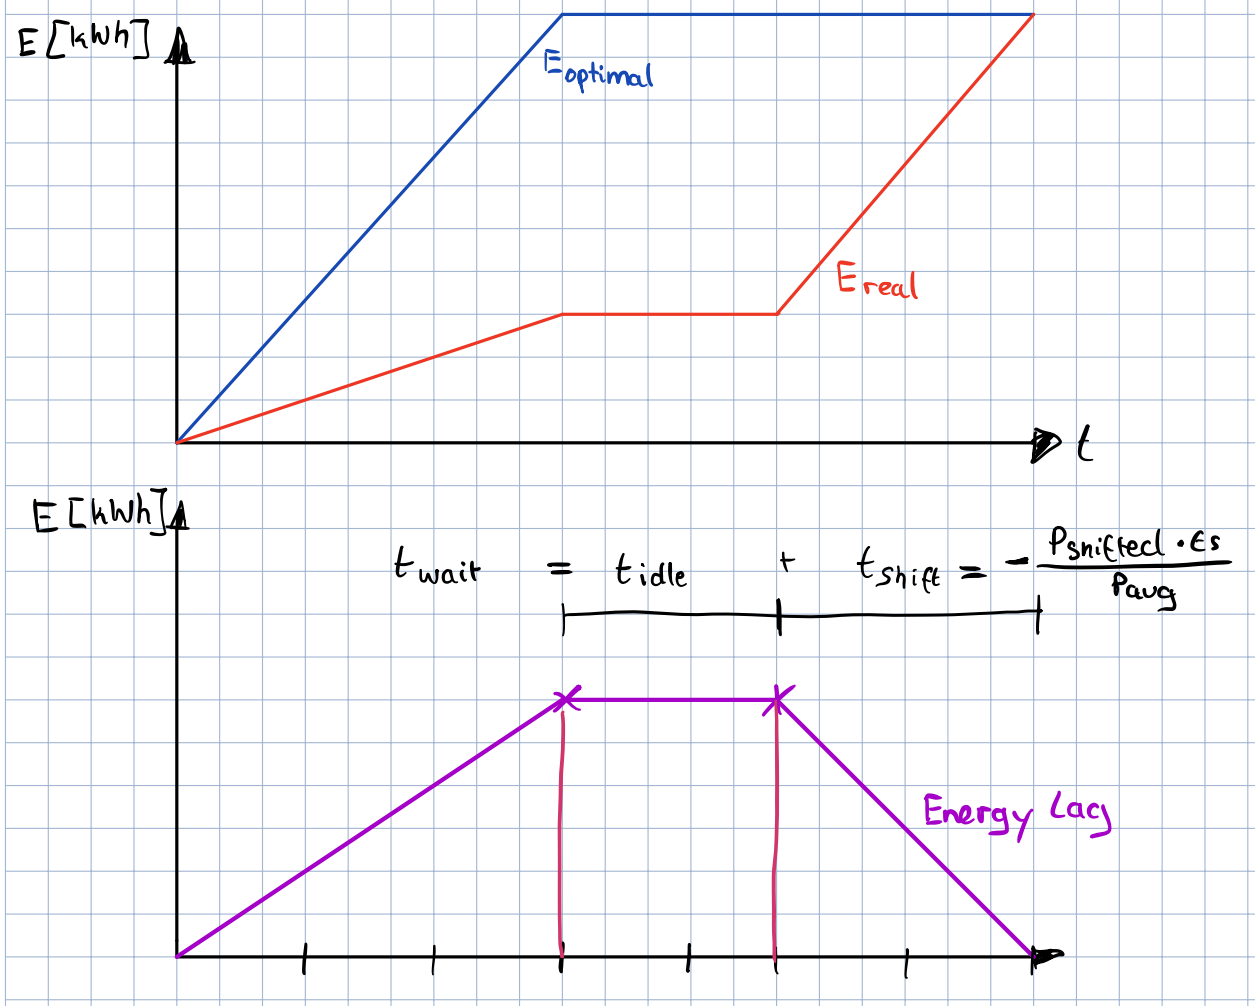 E [kWh]
Eoptimal
Ereal
t
E [kWh]
twait = tidle + tshift = - Pshifted · ts / Pavg
Energy Lag